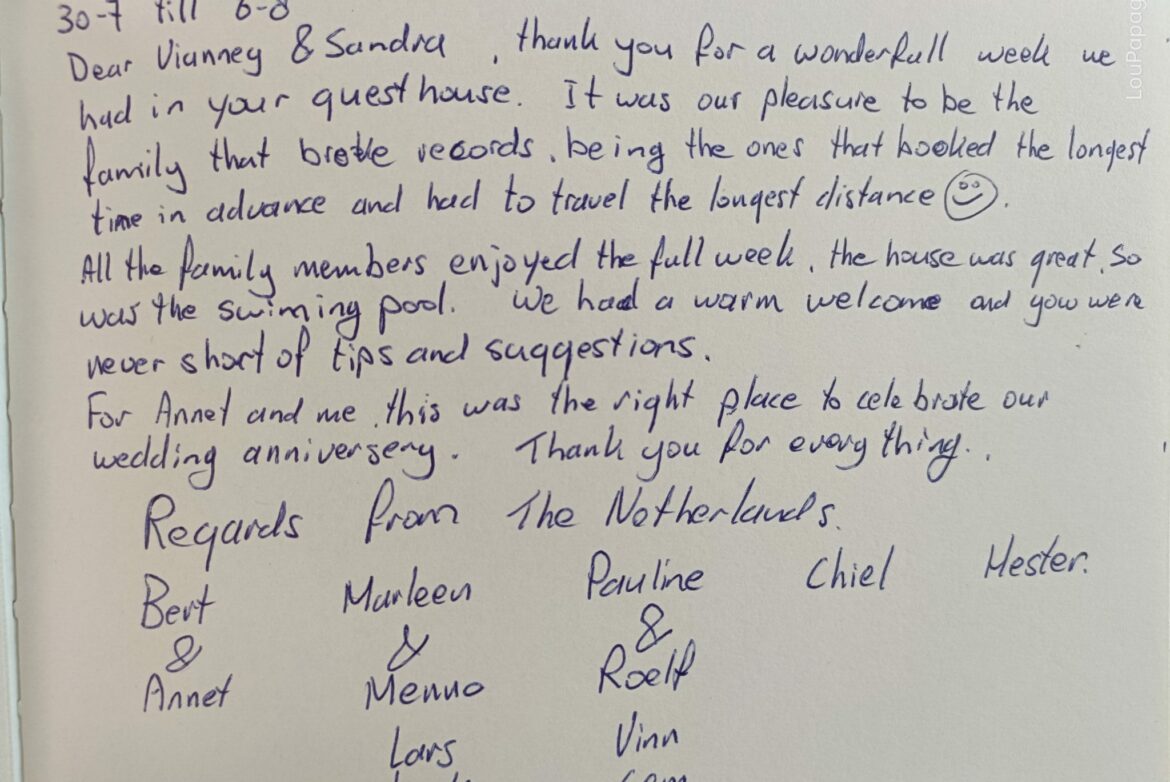 30-7 till 6-8
Dear Vianney & Sandra, thank you for a wonderfull week we
had in your guesthouse. It was our pleasure to be the
family that broke records, being the ones that booked the longest
time in advance and had to travel the longest distance ☺.
All the family members enjoyed the full week, the house was great, so
was the swiming pool. We had a warm welcome and you were
never short of tips and suggestions.
For Annet and me, this was the right place to celebrate our
wedding anniversery. Thank you for every thing..
Regards from The Netherlands.
Bert Marleen Pauline Chiel Hester.
& & &
Annet Menno Roelf
Lars Vinn
LouPapag